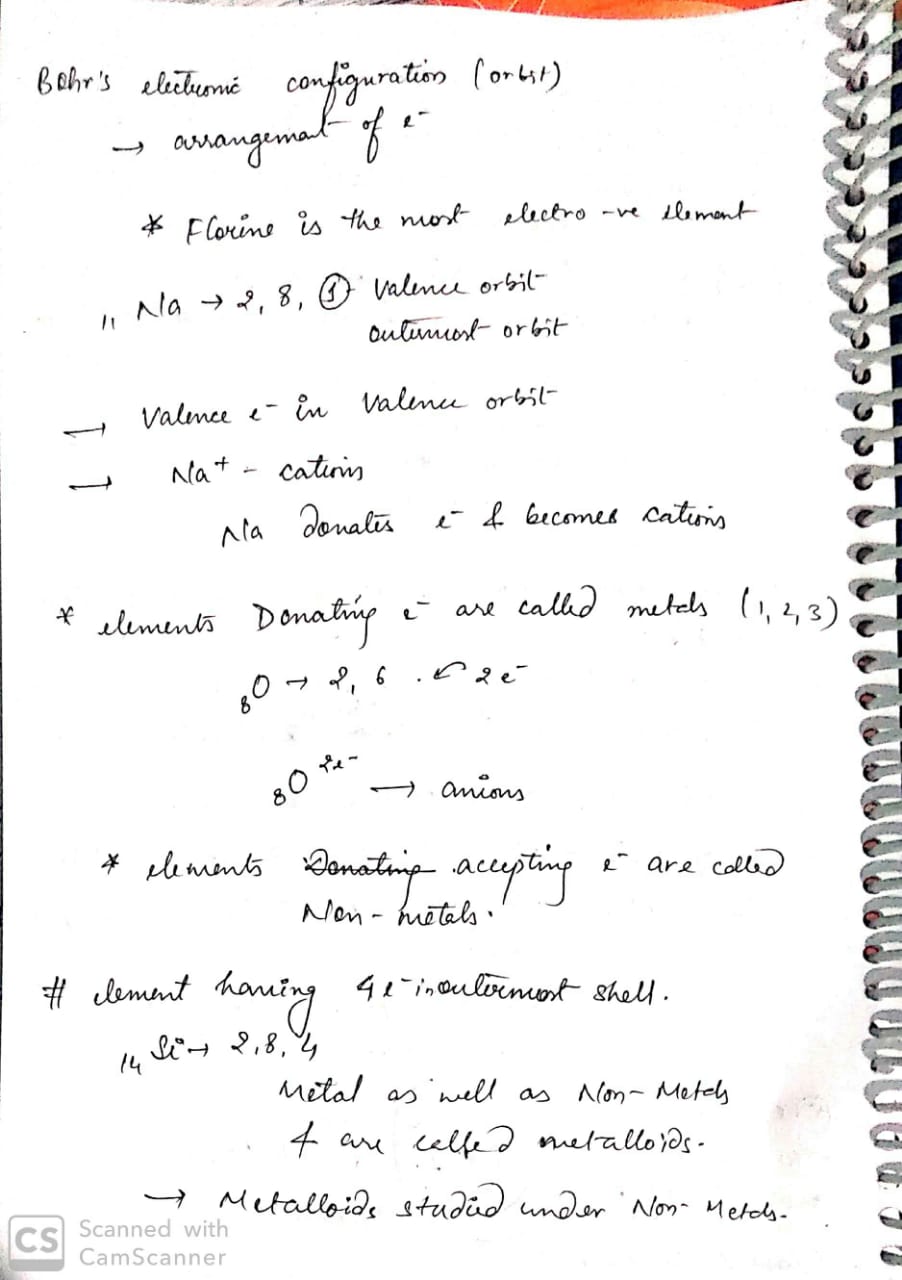 Bohr's electronic configuration (orbit)
→ arrangement of e⁻
* Florine is the most electro -ve element
₁₁Na → 2, 8, ① Valence orbit
outermost orbit
→ Valence e⁻ in Valence orbit
→ Na⁺ - cations
Na donates e⁻ & becomes cations
* elements Donating e⁻ are called metals (1, 2, 3)
₈O → 2, 6 . ↶ 2e⁻
₈O ²ᵉ⁻ → anions
* elements Donating accepting e⁻ are called
Non-metals.
# element having 4 e⁻ in outermost shell.
₁₄Si → 2, 8, 4
Metal as well as Non-Metals
& are called metalloids.
→ Metalloids studied under Non-Metals.
CS Scanned with
CamScanner